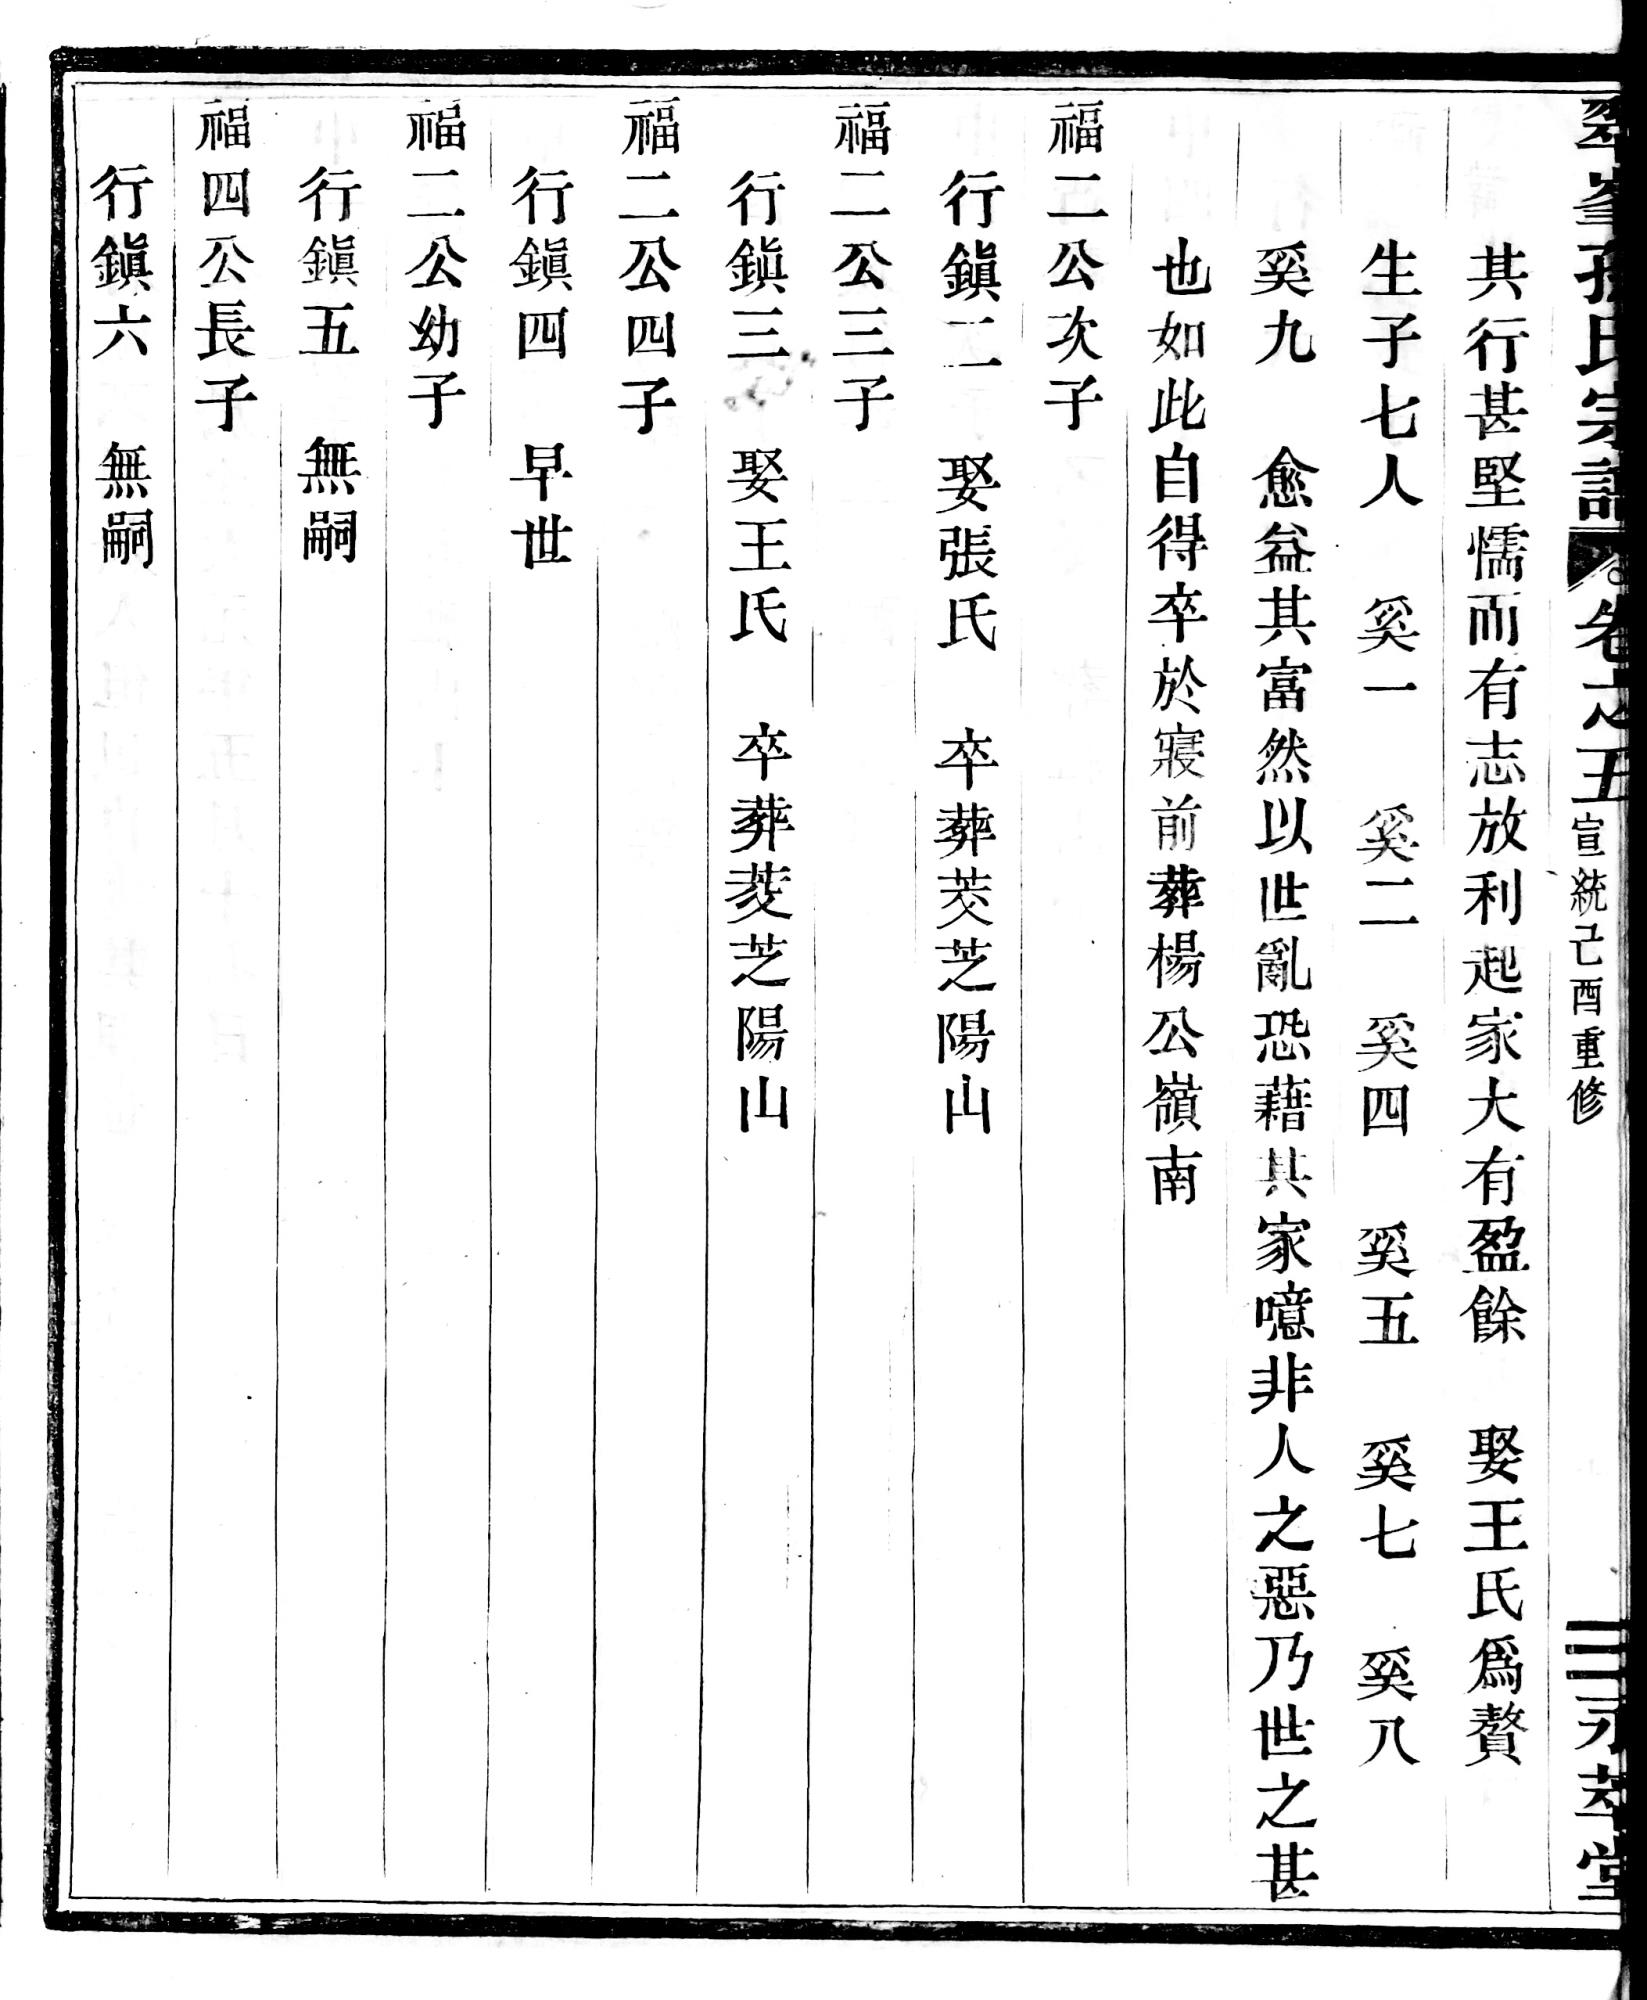 翠峯孫氏宗譜 卷之五 宣統己酉重修 三 永萃堂
其行甚堅懦而有志放利起家大有盈餘 娶王氏爲贅
生子七人 奚一 奚二 奚四 奚五 奚七 奚八
奚九 愈益其富然以世亂恐藉其家噫非人之惡乃世之甚
也如此自得卒於寢前葬楊公嶺南
福二公次子
行鎭二 娶張氏 卒葬茭芝陽山
福二公三子
行鎭三 娶王氏 卒葬茭芝陽山
福二公四子
行鎭四 早世
福二公幼子
行鎭五 無嗣
福四公長子
行鎭六 無嗣